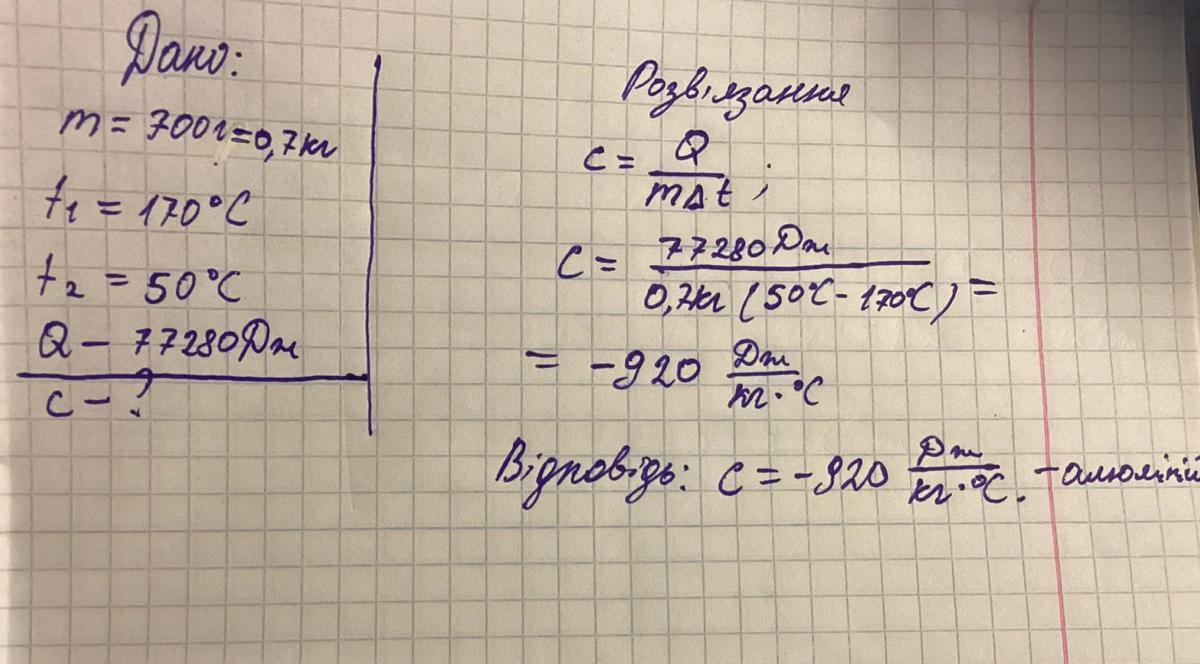 Дано:
m = 700г=0,7кг
t₁ = 170°C
t₂ = 50°C
Q – 77280Дж
c – ?
Розв'язання
c = Q/mΔt ;
c = 77280Дж/0,7кг (50°C - 170°C) =
= -920 Дж/кг·°C
Відповідь: c = -920 Дж/кг·°C. – алюміній